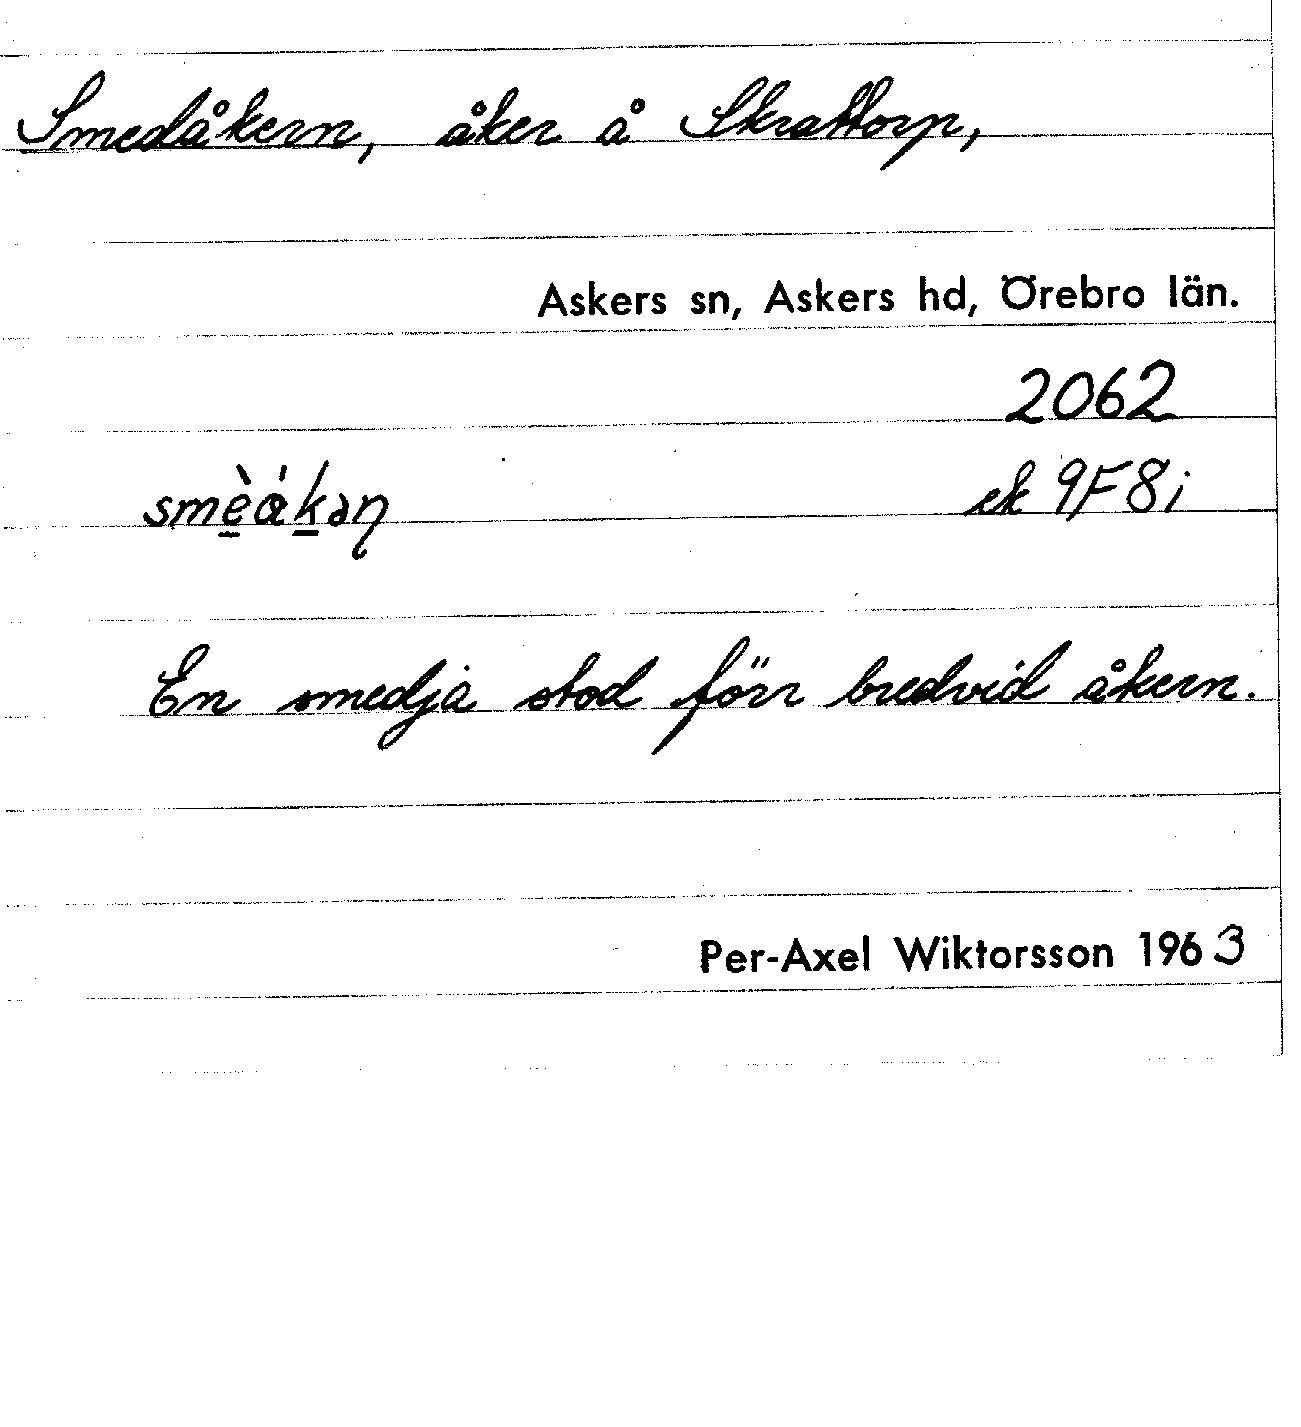 Smedåkern, åker å Skrattorp,
Askers sn, Askers hd, Örebro län.
2062
smè̱áḵən ek 9F8i
En smedja stod förr bredvid åkern.
Per-Axel Wiktorsson 1963